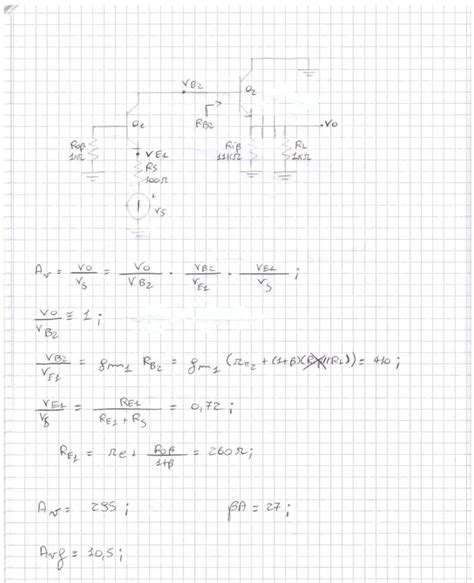 VB2
Q2
Q1
RB2
VO
Roβ
1KΩ
VE1
RS
100Ω
+
VS
Riβ
11KΩ
RL
1KΩ
Av = VO/VS = VO/VB2 · VB2/VE1 · VE1/VS ;
VO/VB2 ≅ 1 ;
VB2/VE1 = gm1 RB2 = gm1 (rπ2 + (1+β)(//RL)) = 410 ;
VE1/VS = RE1/(RE1 + RS) = 0,72 ;
RE1 = re + Roβ/(1+β) = 260Ω ;
Av = 295 ; βA = 27 ;
Avf = 10,5 ;